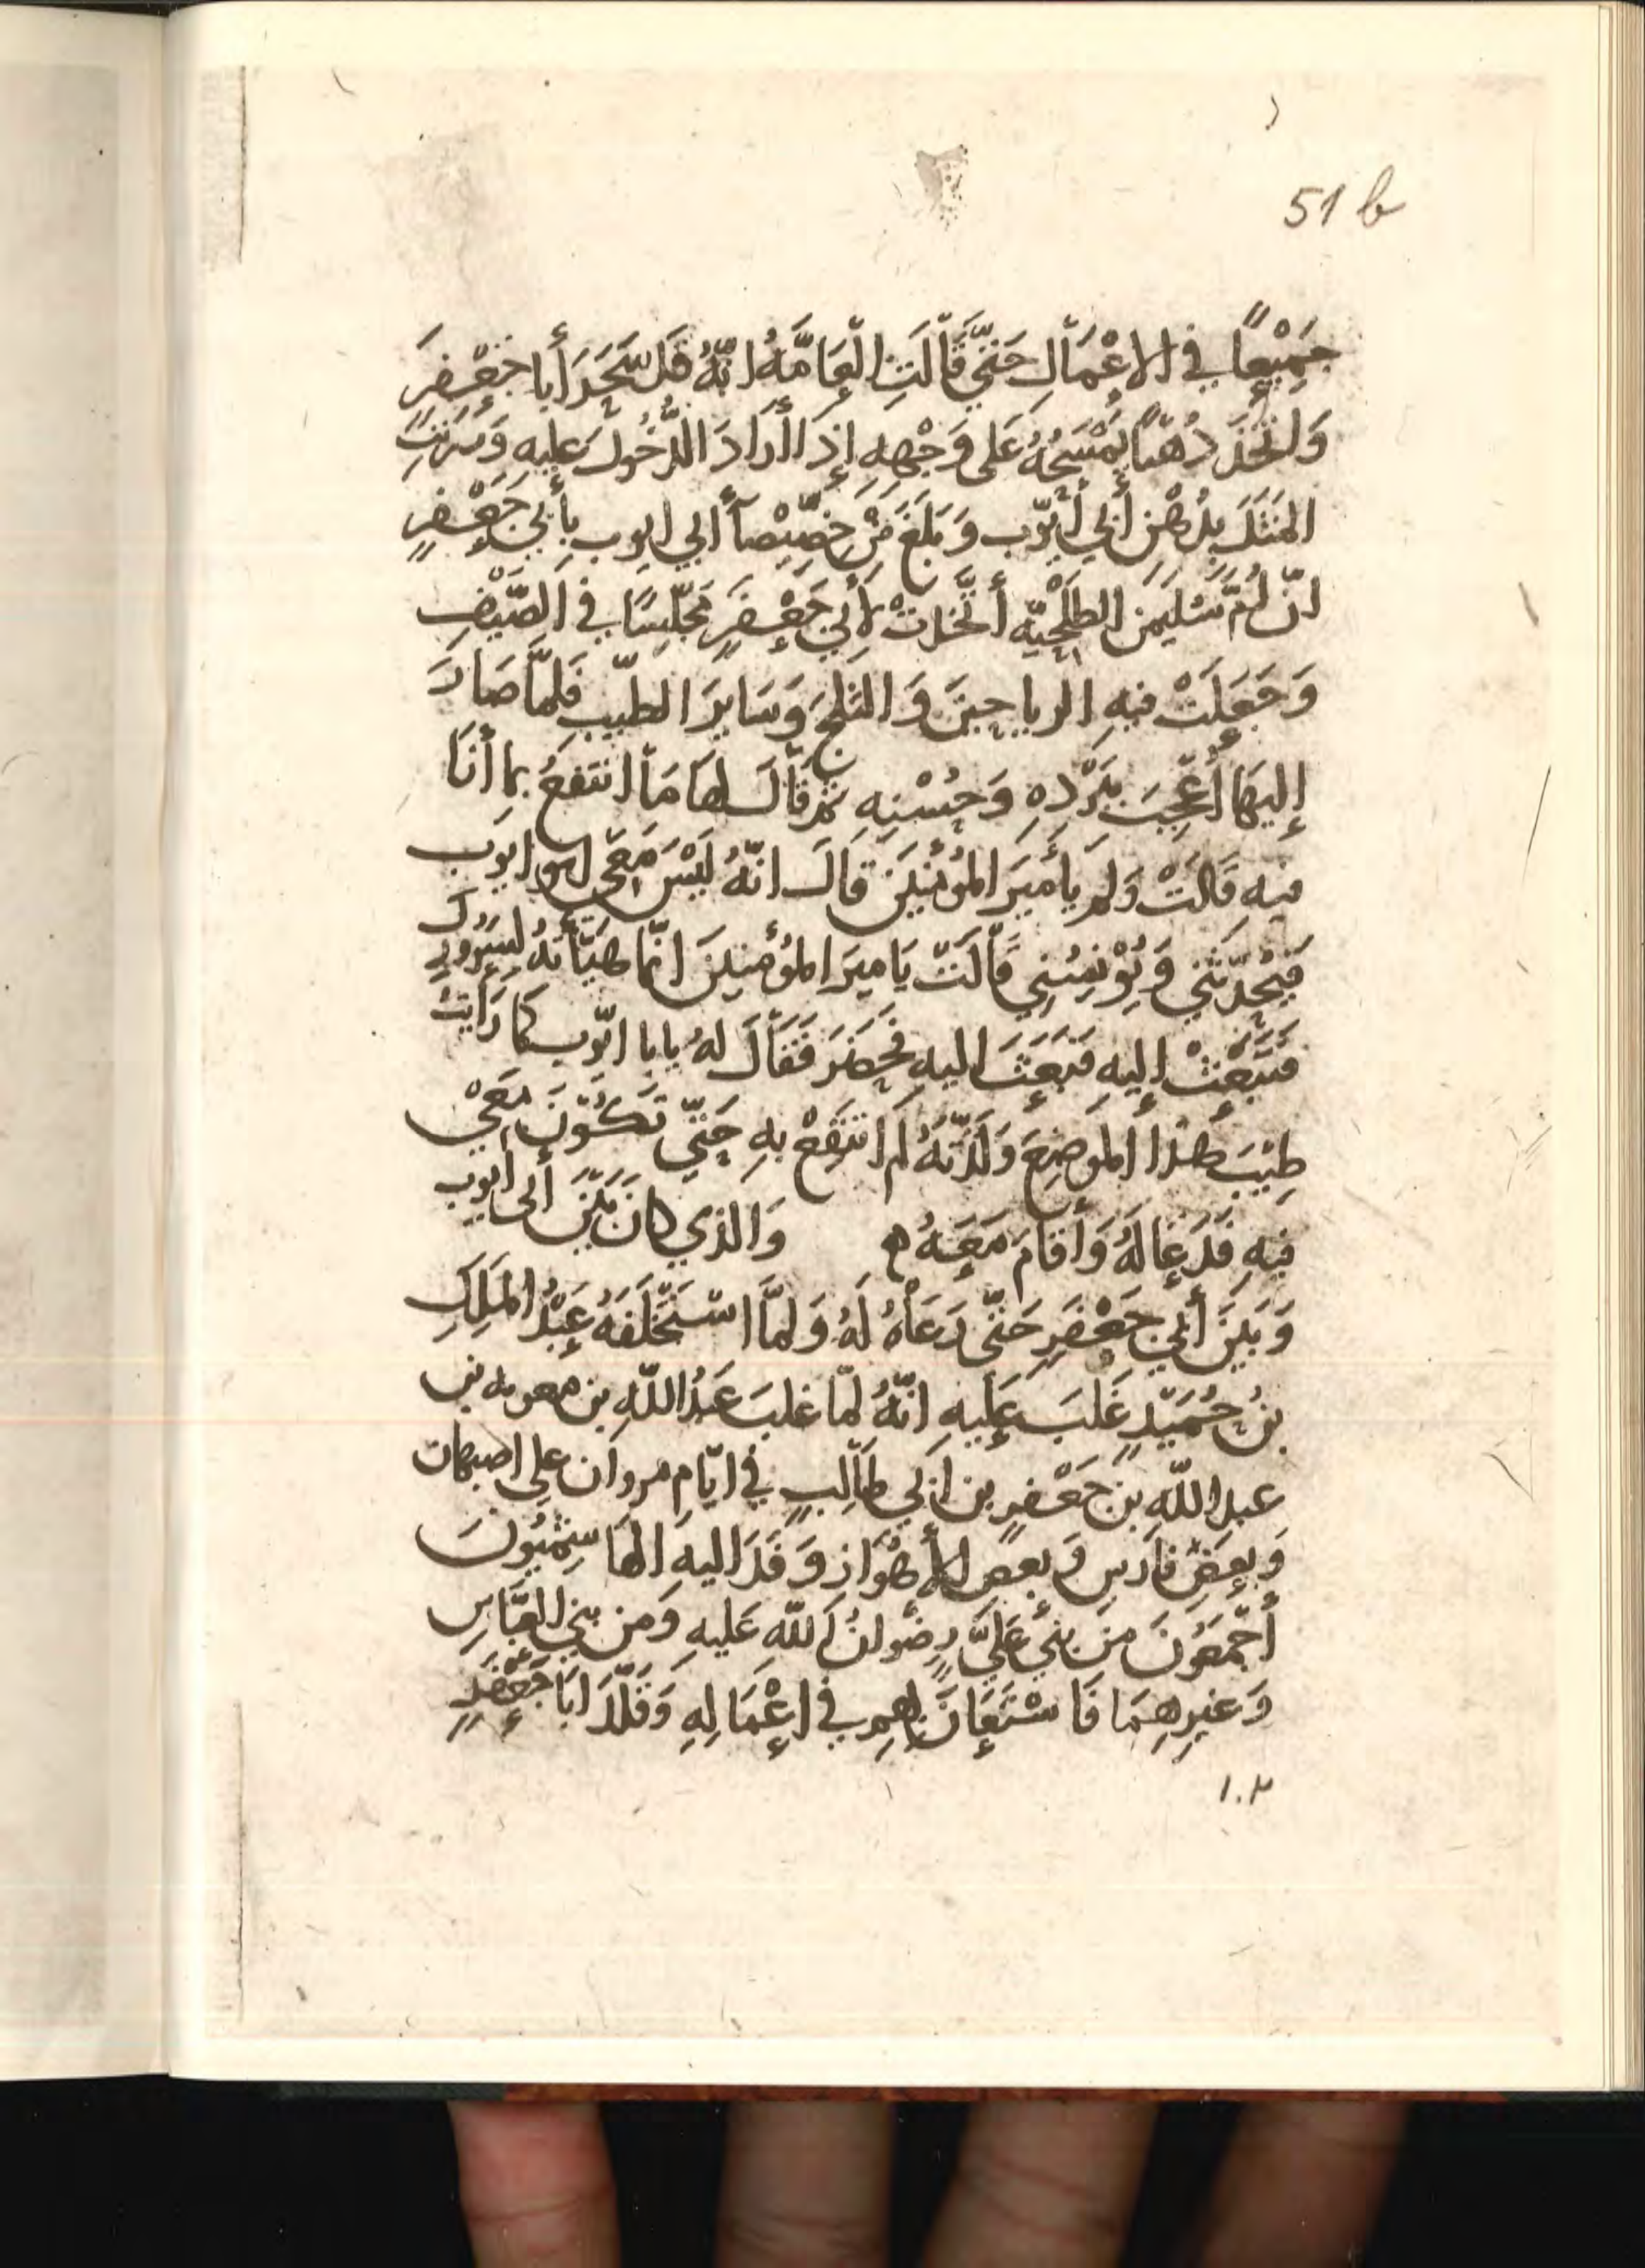 51 b
جَمِيْعًا في الاعْمَالِ حَتّى قَالَتِ الْعَامَّةُ انّهُ قَد سَّحَرَ أبا جَعْفرَ
وَاتخَذ دُهْنًا يمْسَحُهُ عَلى وَجْهِهِ إذا أرَادَ الدُّخُولَ عليهِ وَضَرَبتِ
المَثَلَ بِدُهْنِ أبي أيّوب وَبَلغَ مِنْ خصّيْصا أبي ايوب بِأبي جَعْفرٍ
انّ أمّ سُليمَن الطَلْحِيّه أتّخذتْ لأبي جَعْفَرٍ مَجْلِسًا في الصّيْفِ
وَجَعَلَتْ فيهِ الرياحينَ وَالثلجَ وَسَايرَ الطيبِ فَلمّا صَارَ
إليهَا أُعْجِبَ ببَرْدهِ وَحُسْنِهِ ثم قالَ لها مَا انتفعُ بما أنَا
فيهِ قالتْ وَلم يا أميرَ المُؤمنينَ قالَ انّهُ لَيْسَ مَعَى ابو ايوب
فَيُحَدّثني وَيُؤنِسُني قالَتْ يَا ميرَ المؤمنينَ انّما هَيّأتهُ لِسُرُورِكَ
فتَبْعَثْ إليهِ فبَعَثَ اليهِ فحَضَرَ فَقَالَ لهُ يابا ايّوب كما رَايتُ
طِيْبَ هذا الموضِعَ وَلَذّتَهُ لم انتَفِعْ بهِ حَتّى تكُونَ مَعَيْ
فيهِ فَدَعَا لَهُ وَأقامَ مَعَهُ ه وَالذي كانَ بَيْنَ أبى أيوب
وَبَينَ أبي جَعْفَرٍ حَتّى دَعَاهُ لَهُ وَلمّا اسْتَخْلَفَهُ عَبْدُ المَلِكِ
بنُ حُمَيْدٍ غَلبَ عَليهِ انّهُ لمّا غلبَ عَبدُ اللهِ بن معويه بن
عبد الله بن جَعْفرٍ بن ابي طالِبٍ في ايّام مروان على اصبهان
وَبعضِ فارسِ وَبعضِ الأهْوَاز وَفَدَ اليهِ الهَاشِمِيُونَ
أجْمَعُونَ مِن بني عَليّ رضْوَانُ اللهِ عَليهِ وَمن بني العبّاسِ
وَغيرِهِمَا فَاسْتَعَانَ بهِم في اعْمَالِهِ وَقلّدَ ابَا جَعْفَرٍ
١٠٢